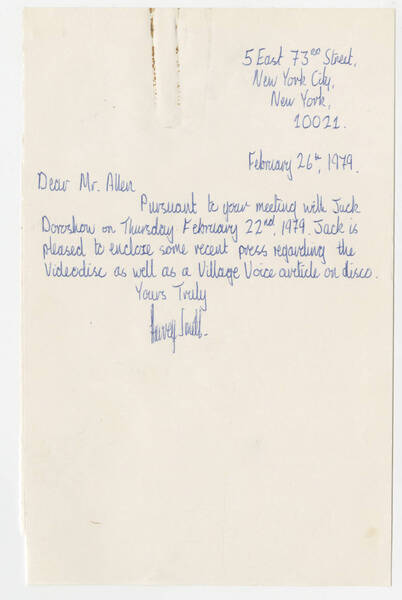 5 East 73rd Street,
New York City,
New York,
10021.
February 26th, 1979.
Dear Mr. Allen
Pursuant to your meeting with Jack
Doroshow on Thursday February 22nd, 1979. Jack is
pleased to enclose some recent press regarding the
Videodisc as well as a Village Voice article on disco.
Yours Truly